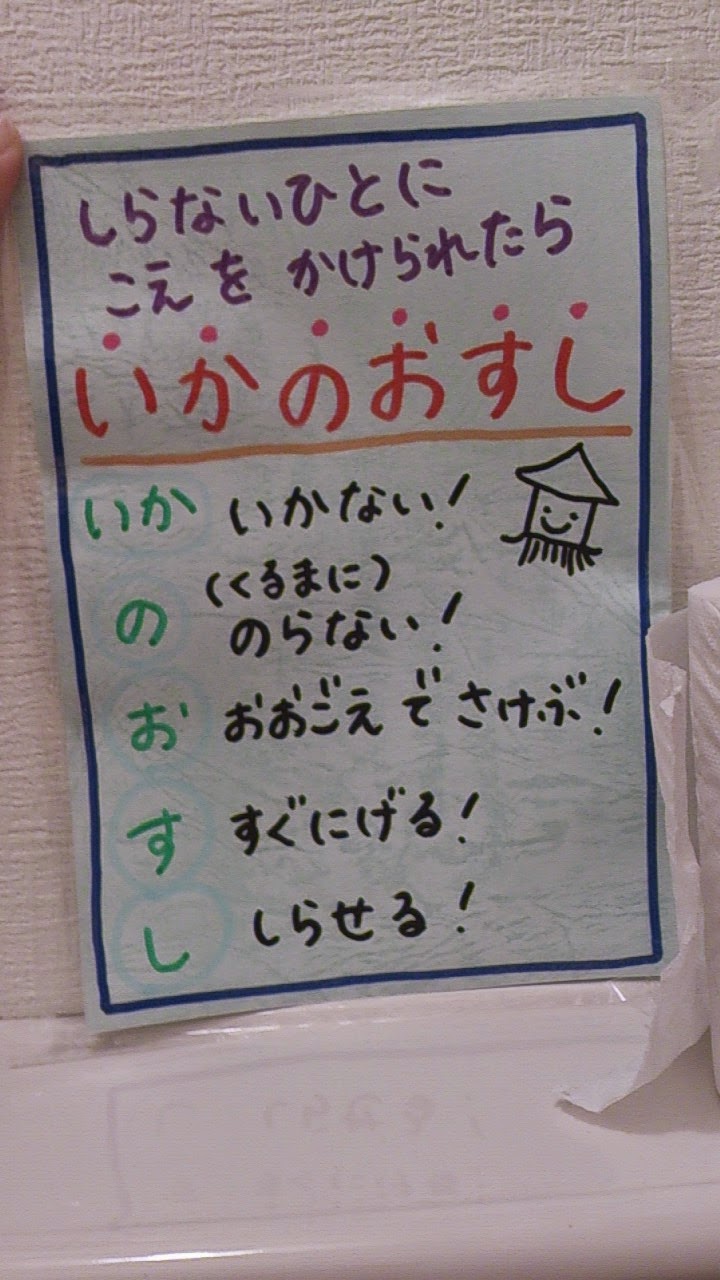 しらないひとに
こえを かけられたら
いかのおすし
いか いかない!
(くるまに)
の のらない!
お おおごえで さけぶ!
す すぐにげる!
し しらせる!